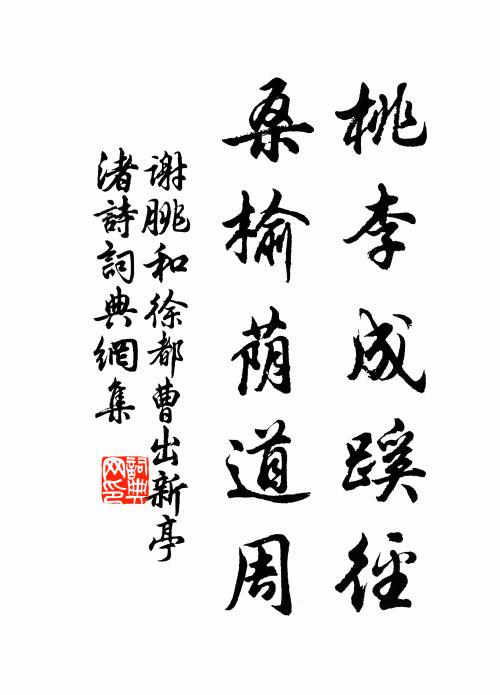 桃李成蹊徑
桑榆荫道周
谢朓和徐都曹出新亭
渚詩詞典網集
詞典
网印